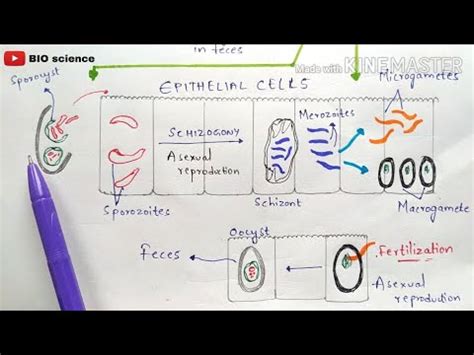 BIO science
in feces
Made with KINEMASTER
Sporocyst
EPITHELIAL CELLS
Microgametes
SCHIZOGONY
Asexual
reproduction
Merozoites
Sporozoites
Schizont
Macrogamete
Oocyst
Feces
Fertilization
Asexual
reproduction